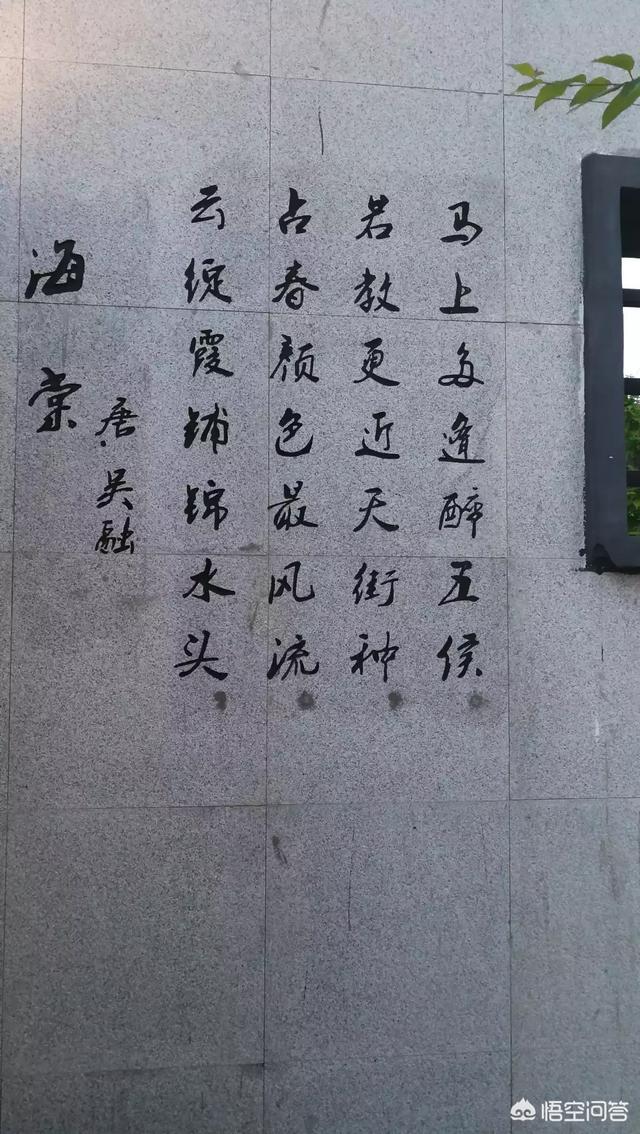 海棠
唐·吴融
云绽霞铺锦水头
占春颜色最风流
若教更近天街种
马上多逢醉五侯
悟空问答